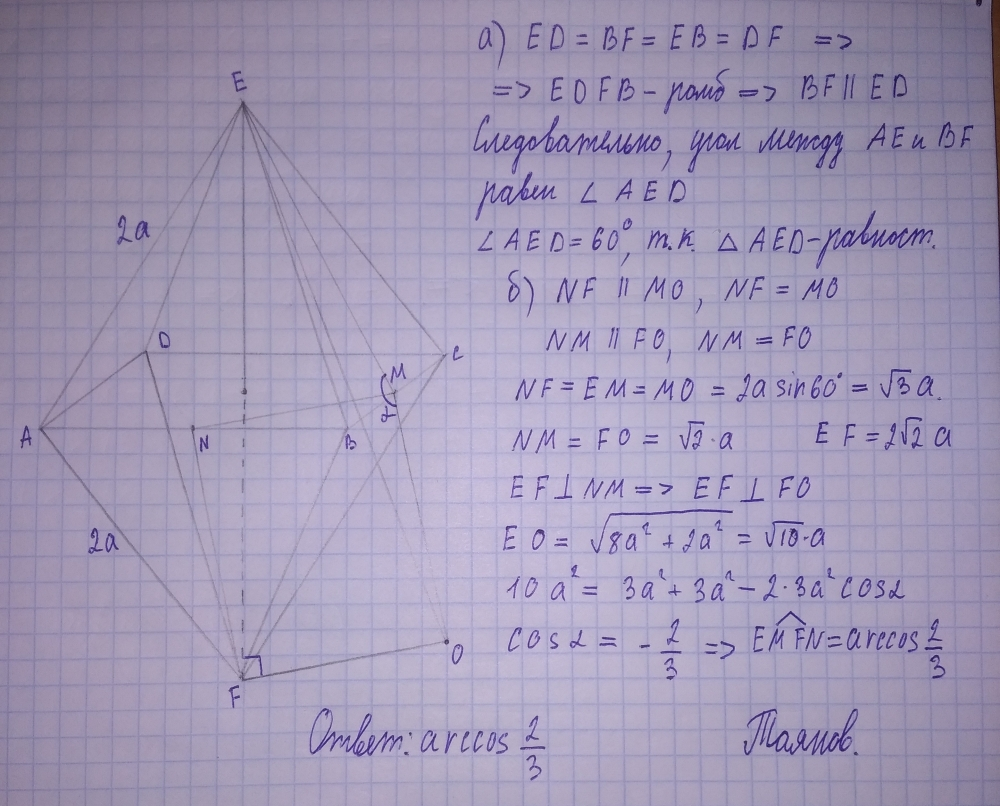 а) ED = BF = EB = DF =>
=> EDFB - ромб => BF || ED
Следовательно, угол между AE и BF
равен ∠ AED
∠ AED = 60°, т.к. △ AED - равност.
б) NF || MO, NF = MO
NM || FO, NM = FO
NF = EM = MO = 2a sin60° = √3 a.
NM = FO = √2·a EF = 2√2 a
EF ⊥ NM => EF ⊥ FO
EO = √(8a² + 2a²) = √10·a
10a² = 3a² + 3a² - 2·3a² cos α
cos α = - 2/3 => EM^FN = arccos 2/3
Ответ: arccos 2/3
Таянов.
E
2a
D
C
M
α
A
N
B
2a
O
F